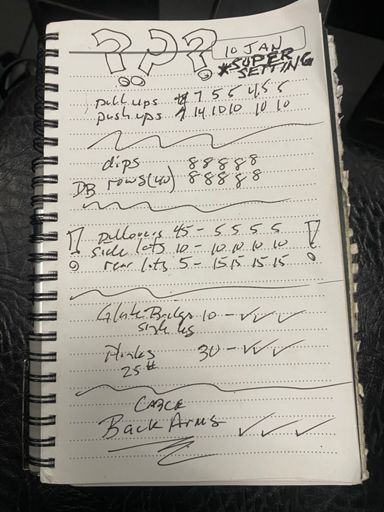 ???
10 JAN
*SUPER
SETTING
pull ups 7 5 5 4 5 5
push ups 14 10 10 10 10
dips 8 8 8 8 8
DB rows (40) 8 8 8 8 8
! pullovers 45 - 5 5 5 5 !
side lats 10 - 10 10 10 10
rear lats 5 - 15 15 15 15
Glute Bridge 10 - ✓✓✓
single leg
Planks 30 - ✓✓✓
25#
CABLE
BACK ARMS ✓ ✓ ✓